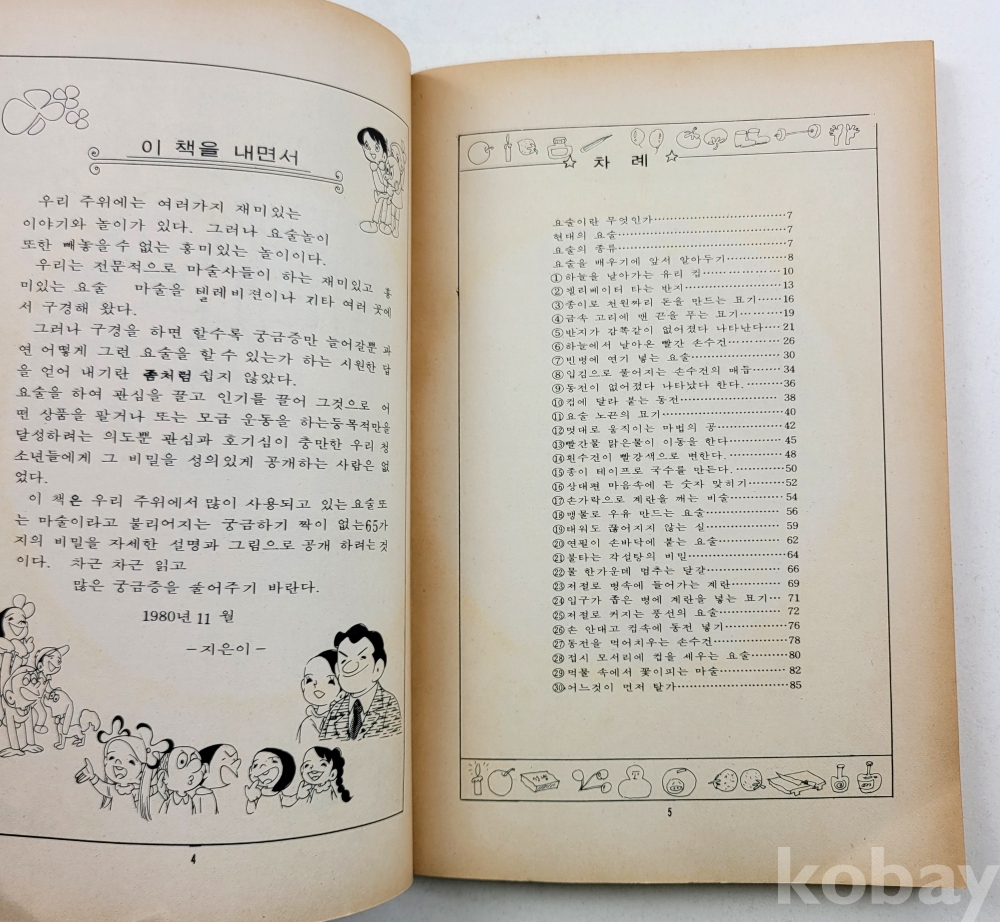 이 책을 내면서
우리 주위에는 여러가지 재미있는
이야기와 놀이가 있다. 그러나 요술놀이
또한 빼놓을 수 없는 흥미있는 놀이이다.
우리는 전문적으로 마술사들이 하는 재미있고 흥
미있는 요술 마술을 텔레비젼이나 기타 여러 곳에
서 구경해 왔다.
그러나 구경을 하면 할수록 궁금증만 늘어갈뿐 과
연 어떻게 그런 요술을 할 수 있는가 하는 시원한 답
을 얻어 내기란 좀처럼 쉽지 않았다.
요술을 하여 관심을 끌고 인기를 끌어 그것으로 어
떤 상품을 팔거나 또는 모금 운동을 하는등목적만을
달성하려는 의도뿐 관심과 호기심이 충만한 우리 청
소년들에게 그 비밀을 성의있게 공개하는 사람은 없
었다.
이 책은 우리 주위에서 많이 사용되고 있는 요술또
는 마술이라고 불리어지는 궁금하기 짝이 없는65가
지의 비밀을 자세한 설명과 그림으로 공개 하려는것
이다. 차근 차근 읽고
많은 궁금증을 풀어주기 바란다.
1980년 11월
-지은이-
4
☆ 차 례 ☆
요술이란 무엇인가……………7
현대의 요술……………7
요술의 종류……………7
요술을 배우기에 앞서 알아두기……………8
①하늘을 날아가는 유리 컵……………10
②엘리베이터 타는 반지……………13
③종이로 천원짜리 돈을 만드는 묘기……………16
④금속 고리에 맨 끈을 푸는 묘기……………19
⑤반지가 감쪽같이 없어졌다 나타난다……………21
⑥하늘에서 날아온 빨간 손수건……………26
⑦빈병에 연기 넣는 요술……………30
⑧입김으로 풀어지는 손수건의 매듭……………34
⑨동전이 없어졌다 나타났다 한다.……………36
⑩컵에 달라 붙는 동전……………38
⑪요술 노끈의 묘기……………40
⑫멋대로 움직이는 마법의 공……………42
⑬빨간물 맑은물이 이동을 한다……………45
⑭흰수건이 빨강색으로 변한다.……………48
⑮종이 테이프로 국수를 만든다.……………50
⑯상대편 마음속에 든 숫자 맞히기……………52
⑰손가락으로 계란을 깨는 비술……………54
⑱맹물로 우유 만드는 요술……………56
⑲태워도 끊어지지 않는 실……………59
⑳연필이 손바닥에 붙는 요술……………62
㉑불타는 각설탕의 비밀……………64
㉒물 한가운데 멈추는 달걀……………66
㉓저절로 병속에 들어가는 계란……………69
㉔입구가 좁은 병에 계란을 넣는 묘기……………71
㉕저절로 커지는 풍선의 요술……………72
㉖손 안대고 컵속에 동전 넣기……………76
㉗동전을 먹어치우는 손수건……………78
㉘접시 모서리에 컵을 세우는 요술……………80
㉙먹물 속에서 꽃이피는 마술……………82
㉚어느것이 먼저 탈가……………85
5
kobay